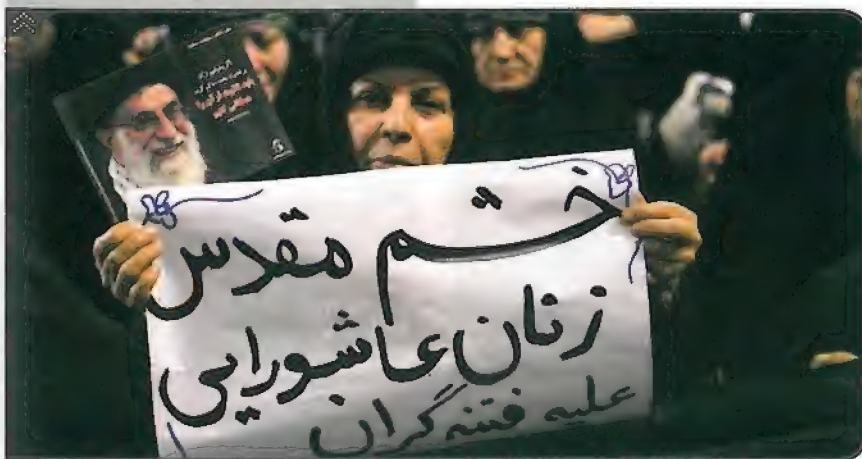 خشم مقدس
زنان عاشورایی
علیه فتنه گران